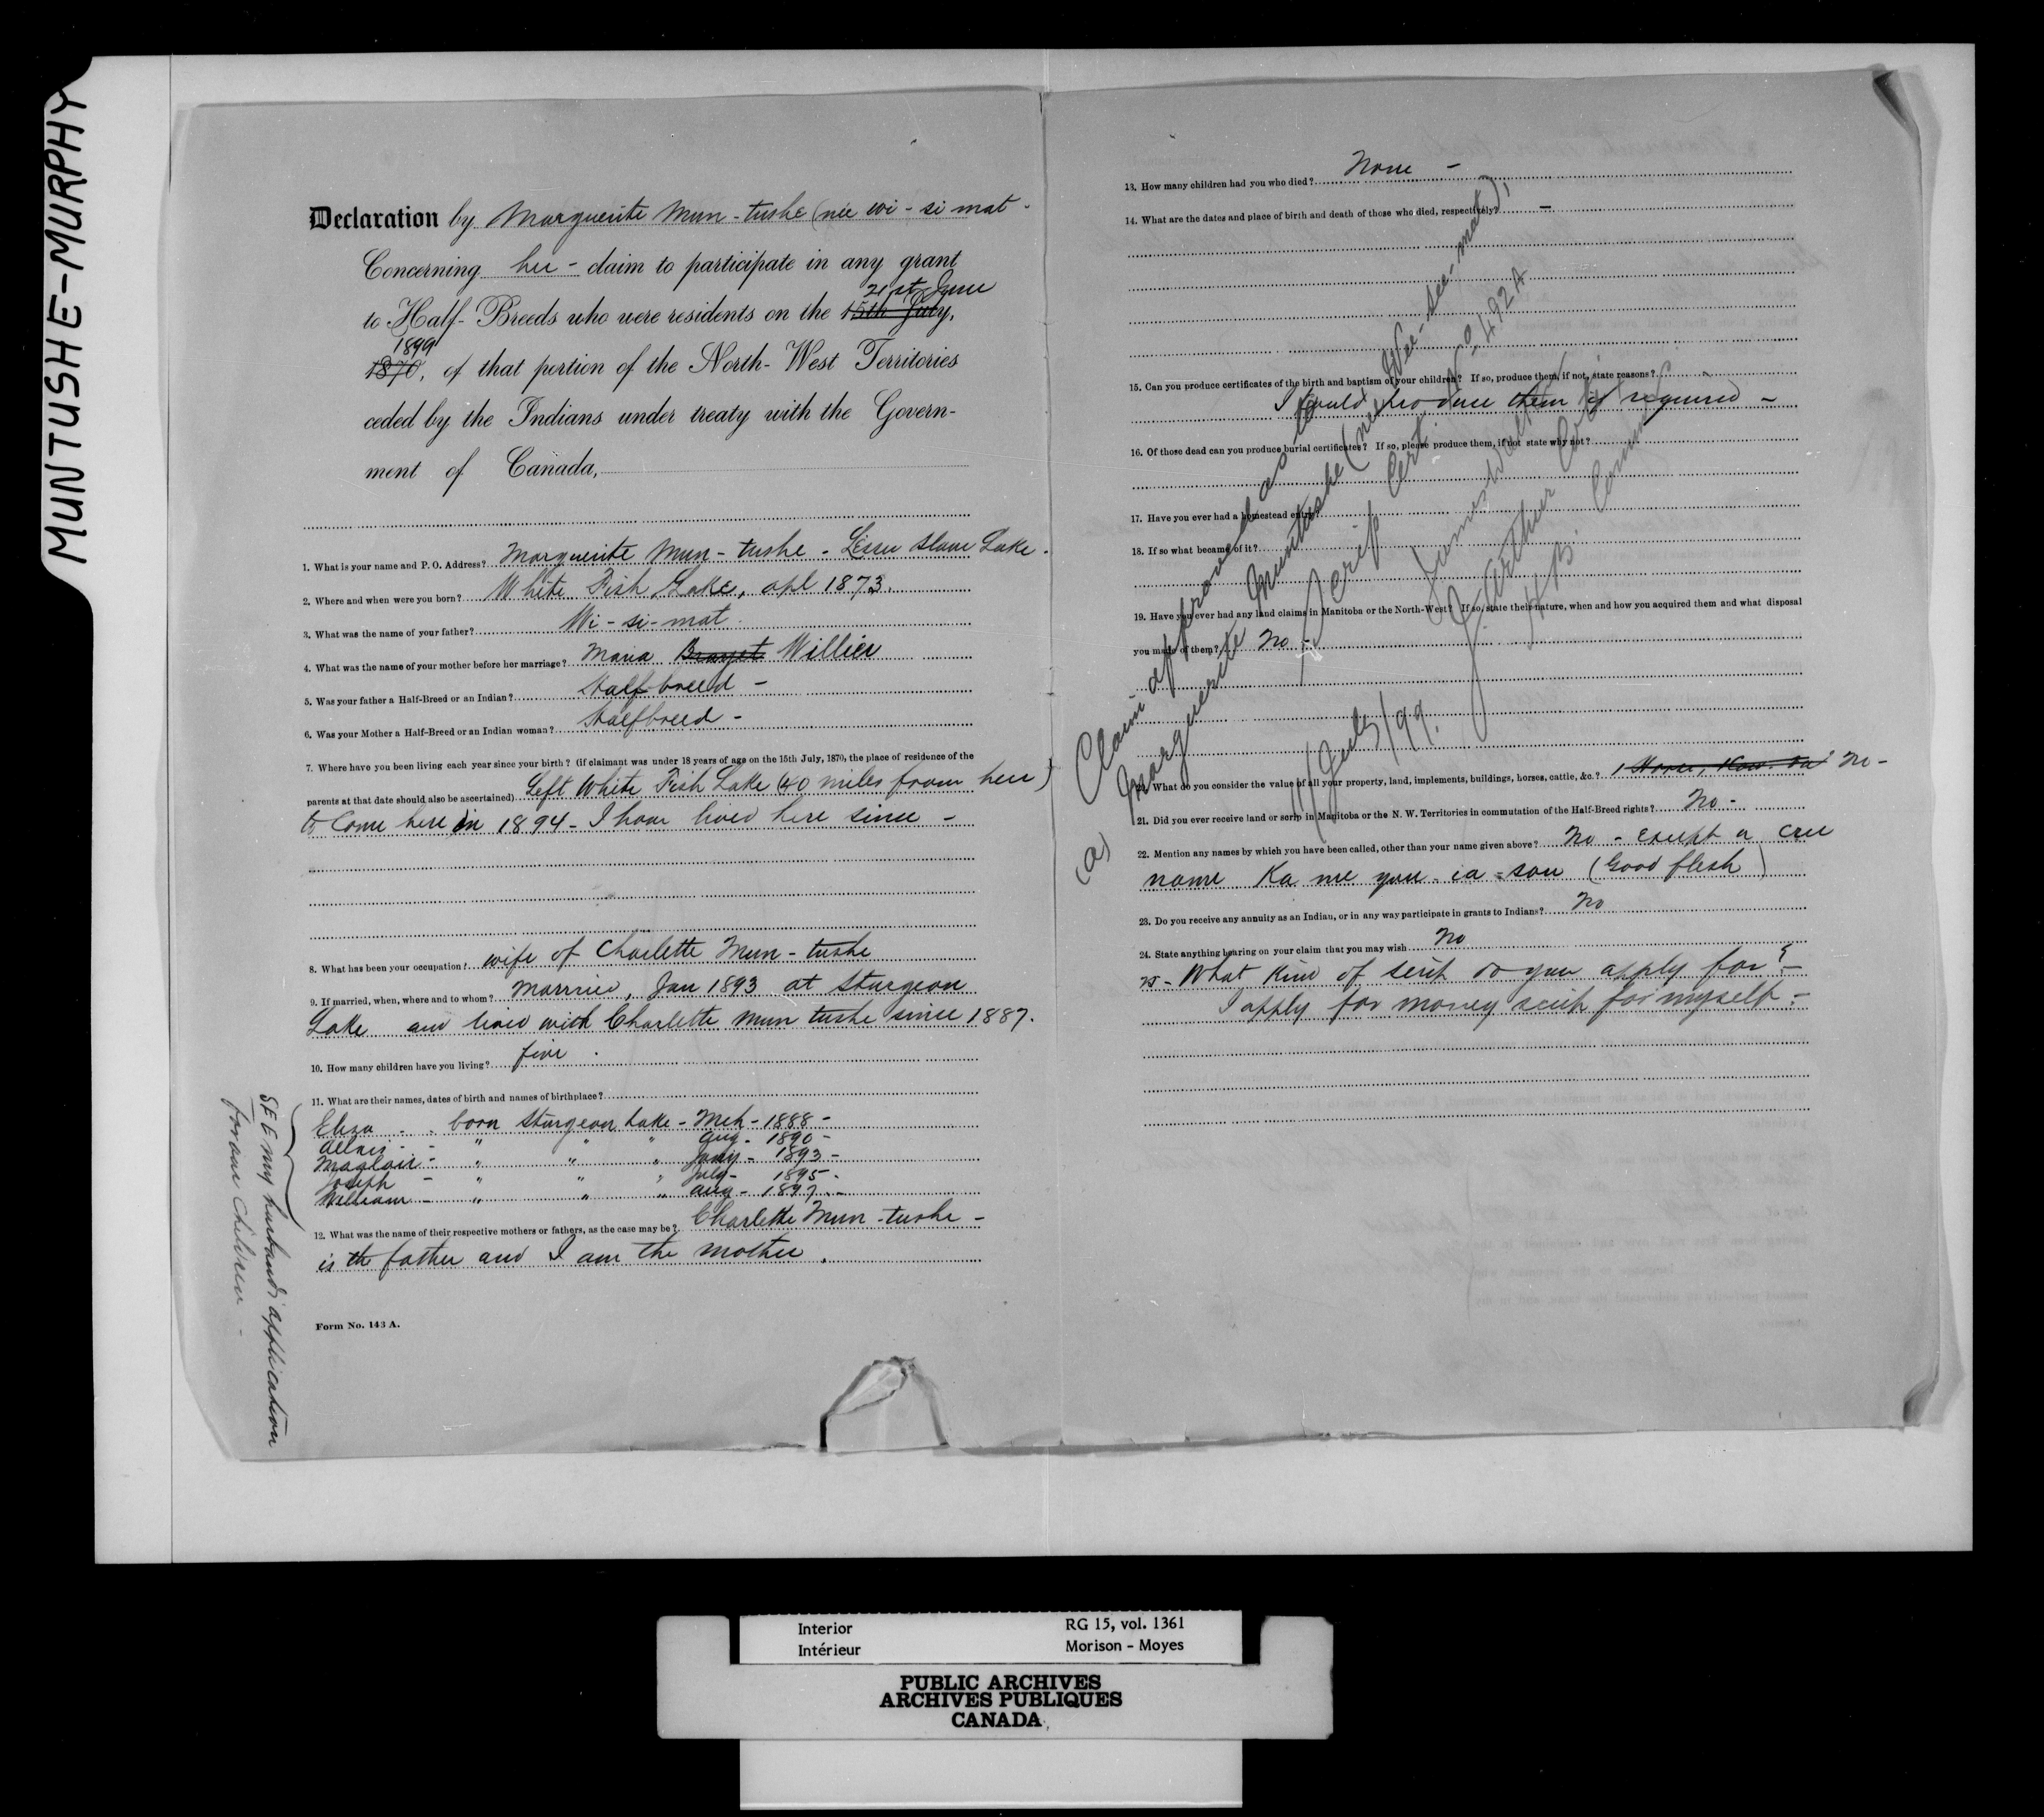 MUNTUSHE-MURPHY
Declaration by Marguerite Mun-tushe (née wi-si mat-
Concerning her - claim to participate in any grant
21st June
to Half-Breeds who were residents on the 15th July,
1899
1870, of that portion of the North-West Territories
ceded by the Indians under treaty with the Govern-
ment of Canada,
1. What is your name and P. O. Address? Marguerite Mun-tushe - Lesser Slave Lake.
2. Where and when were you born? White Fish Lake, apl 1873.
3. What was the name of your father? Wi-si-mat.
4. What was the name of your mother before her marriage? Maria Willier
5. Was your father a Half-Breed or an Indian? Halfbreed -
6. Was your Mother a Half-Breed or an Indian woman? Halfbreed -
7. Where have you been living each year since your birth? (if claimant was under 18 years of age on the 15th July, 1870, the place of residence of the
parents at that date should also be ascertained) Left White Fish Lake (40 miles from here)
to come here in 1894 - I have lived here since -
8. What has been your occupation? wife of Charlette Mun-tushe
9. If married, when, where and to whom? Married, Jan 1893 at Sturgeon
Lake and lived with Charlette Mun tushe since 1887.
10. How many children have you living? five.
11. What are their names, dates of birth and names of birthplace?
Eliza - - born Sturgeon Lake - Mch - 1888 -
- " " " Aug - 1890 -
- " " " Jany - 1893 -
Joseph - " " " July - 1895 -
William - " " " Aug - 1897 -
12. What was the name of their respective mothers or fathers, as the case may be? Charlette Mun-tushe -
is the father and I am the mother.
SEE my husband's application
for our children -
Form No. 143 A.
13. How many children had you who died? None -
14. What are the dates and place of birth and death of those who died, respectively? -
15. Can you produce certificates of the birth and baptism of your children? If so, produce them, if not, state reasons?
I could produce them if required -
16. Of those dead can you produce burial certificates? If so, please produce them, if not state why not?
17. Have you ever had a homestead entry?
18. If so what became of it?
19. Have you ever had any land claims in Manitoba or the North-West? If so, state their nature, when and how you acquired them and what disposal
you made of them? No -
20. What do you consider the value of all your property, land, implements, buildings, horses, cattle, &c.? 1 Horse, No -
21. Did you ever receive land or scrip in Manitoba or the N. W. Territories in commutation of the Half-Breed rights? No -
22. Mention any names by which you have been called, other than your name given above? No - except a Cree
name Ka me you - ia - sou (Good flesh)
23. Do you receive any annuity as an Indian, or in any way participate in grants to Indians? No
24. State anything bearing on your claim that you may wish No
25 - What kind of scrip do you apply for? -
I apply for money scrip for myself -
Claim approved as
(a) Marguerite Muntushe (née Wee-see-mat),
Scrip Cert. No 4924
James Walker
J. Arthur Coté
H.B. Comm
11/July/99.
Interior
Intérieur
RG 15, vol. 1361
Morison - Moyes
PUBLIC ARCHIVES
ARCHIVES PUBLIQUES
CANADA